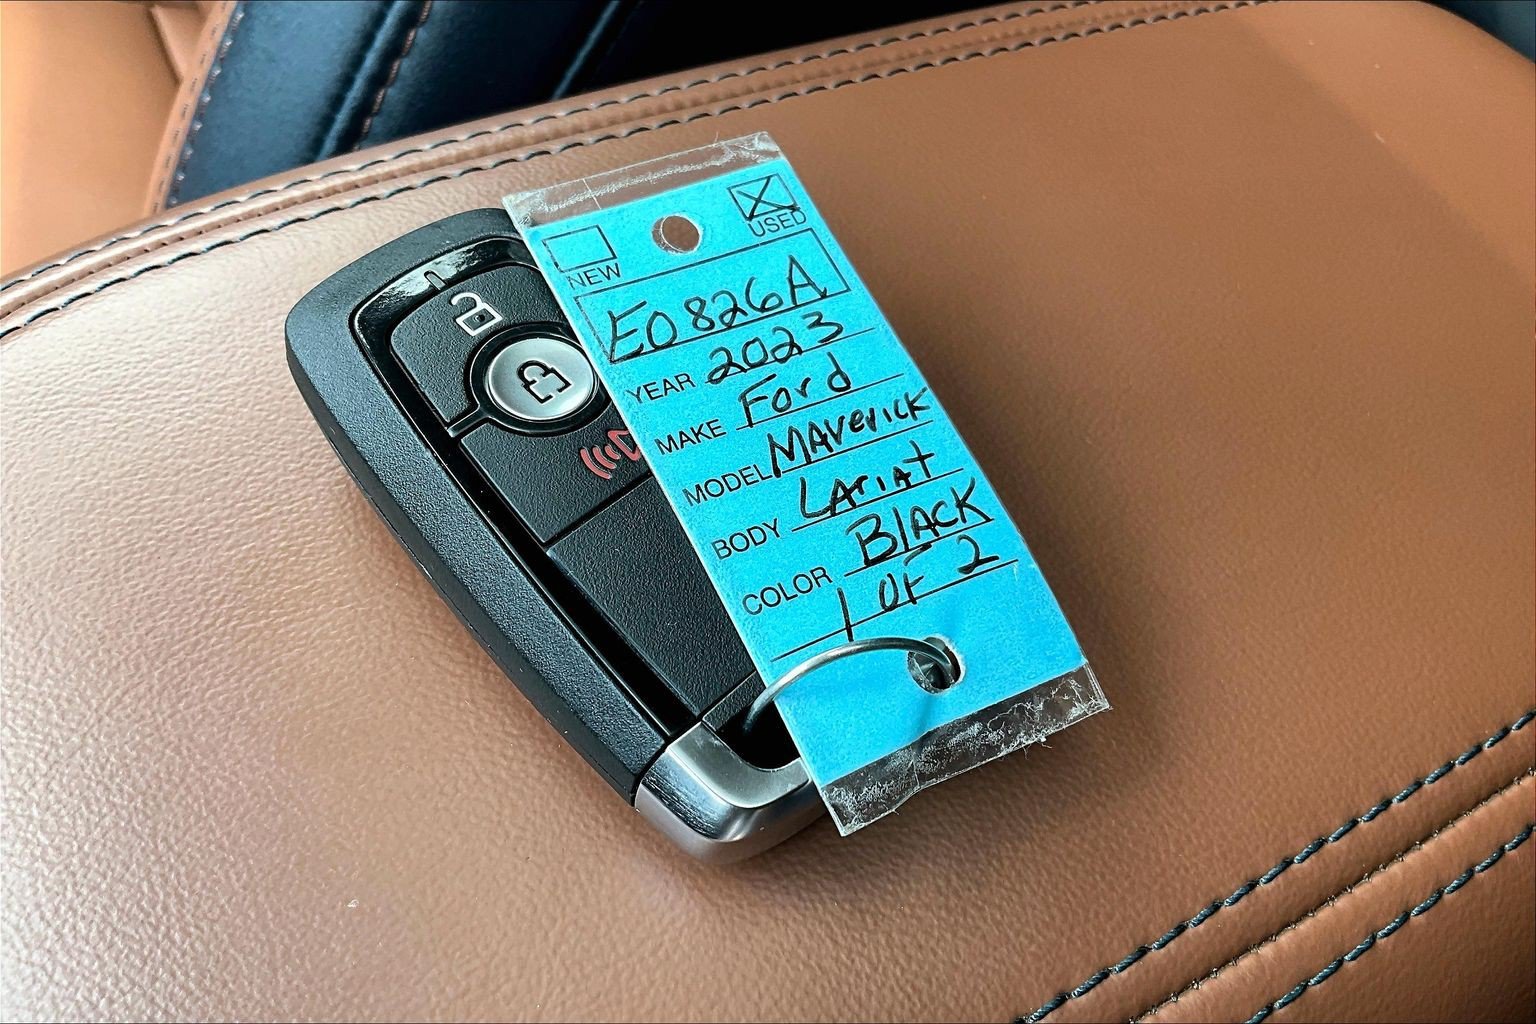 NEW USED
E0826A
YEAR 2023
MAKE Ford
MODEL MAVerick
BODY LAriAt
COLOR BlACK
1 OF 2